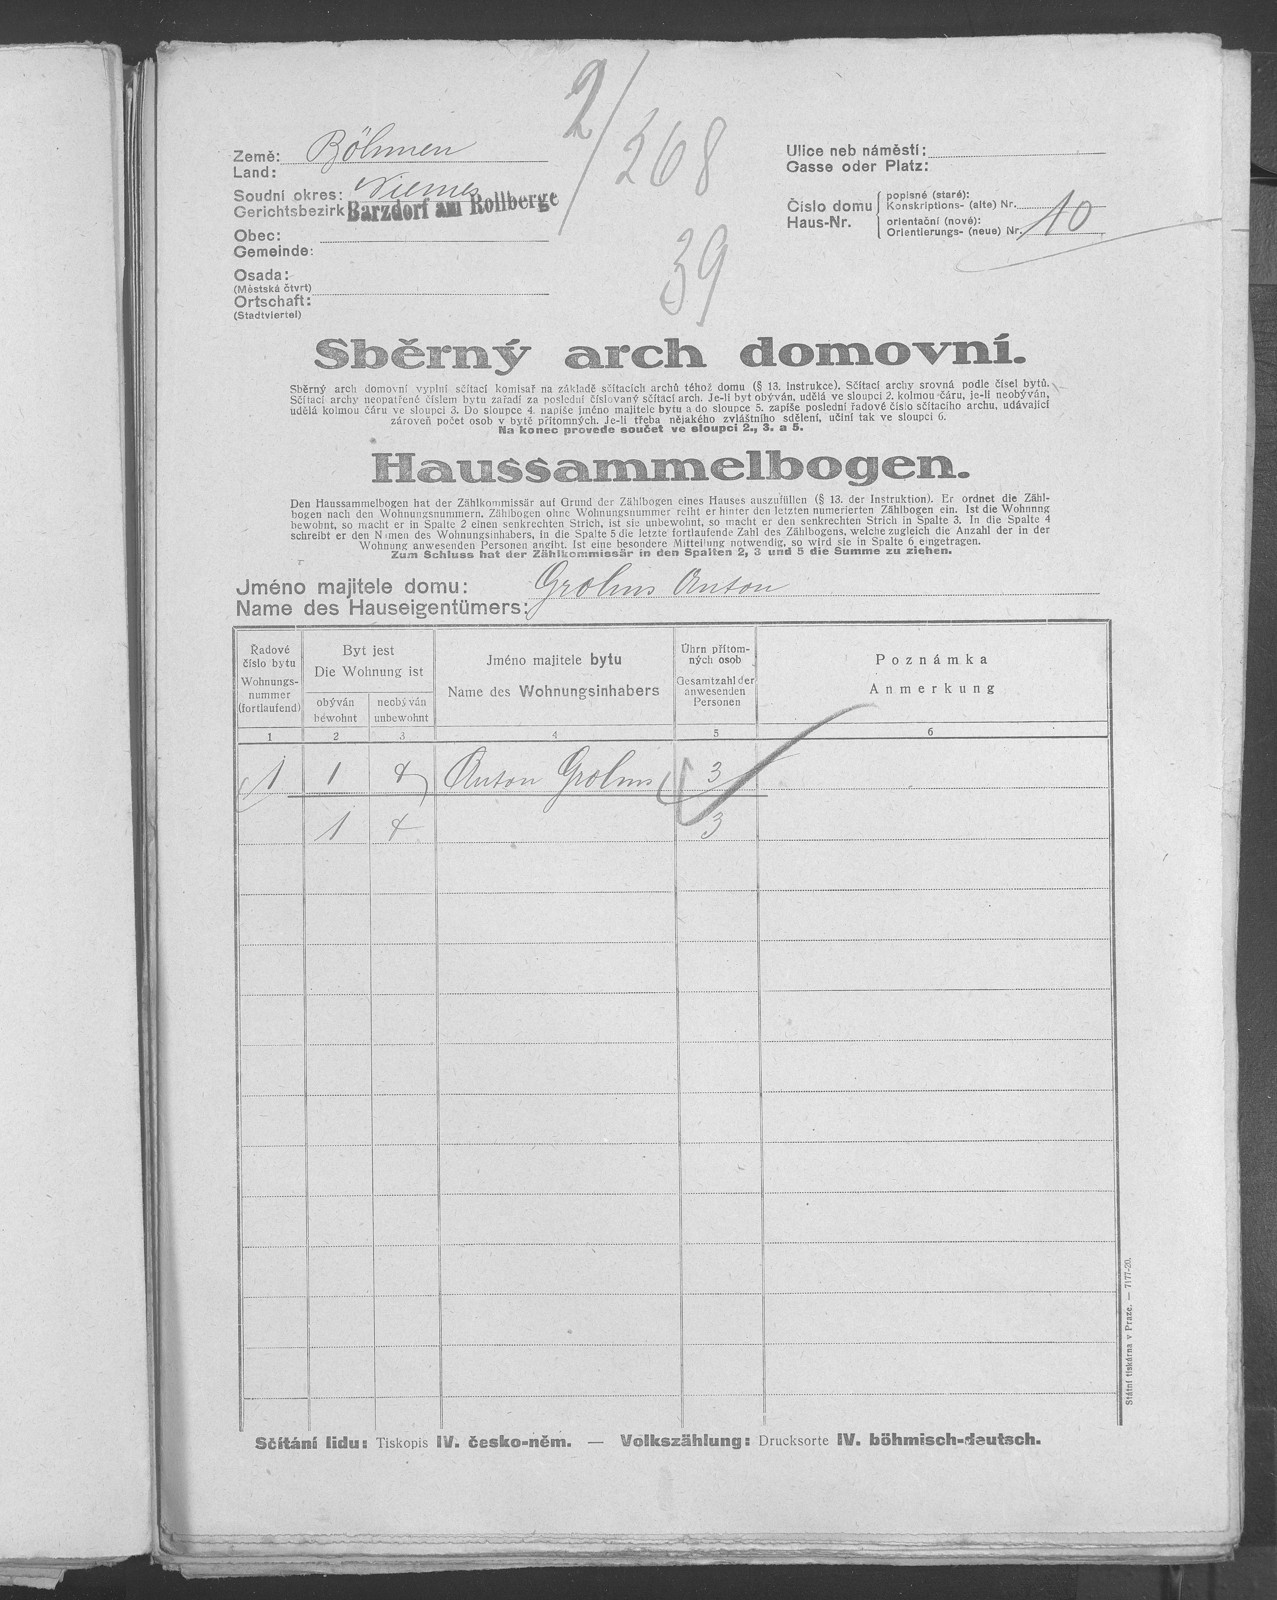 2/
368
39
Země: Böhmen
Land:
Soudní okres: Niemes
Gerichtsbezirk Barzdorf am Rollberge
Obec:
Gemeinde:
Osada:
(Městská čtvrt)
Ortschaft:
(Stadtviertel)
Ulice neb náměstí:
Gasse oder Platz:
Číslo domu
Haus-Nr.
popisné (staré):
Konskriptions- (alte) Nr.
orientační (nové):
Orientierungs- (neue) Nr. 10
Sběrný arch domovní.
Sběrný arch domovní vyplní sčítací komisař na základě sčítacích archů téhož domu (§ 13. instrukce). Sčítací archy srovná podle čísel bytů.
Sčítací archy neopatřené číslem bytu zařadí za poslední číslovaný sčítací arch. Je-li byt obýván, udělá ve sloupci 2. kolmou čáru, je-li neobýván,
udělá kolmou čáru ve sloupci 3. Do sloupce 4. napíše jméno majitele bytu a do sloupce 5. zapíše poslední řadové číslo sčítacího archu, udávající
zároveň počet osob v bytě přítomných. Je-li třeba nějakého zvláštního sdělení, učiní tak ve sloupci 6.
Na konec provede součet ve sloupci 2., 3. a 5.
Haussammelbogen.
Den Haussammelbogen hat der Zählkommissär auf Grund der Zählbogen eines Hauses auszufüllen (§ 13. der Instruktion). Er ordnet die Zähl-
bogen nach den Wohnungsnummern. Zählbogen ohne Wohnungsnummer reiht er hinter den letzten numerierten Zählbogen ein. Ist die Wohnnng
bewohnt, so macht er in Spalte 2 einen senkrechten Strich, ist sie unbewohnt, so macht er den senkrechten Strich in Spalte 3. In die Spalte 4
schreibt er den Namen des Wohnungsinhabers, in die Spalte 5 die letzte fortlaufende Zahl des Zählbogens, welche zugleich die Anzahl der in der
Wohnung anwesenden Personen angibt. Ist eine besondere Mitteilung notwendig, so wird sie in Spalte 6 eingetragen.
Zum Schluss hat der Zählkommissär in den Spalten 2, 3 und 5 die Summe zu ziehen.
Jméno majitele domu: Grohms Anton
Name des Hauseigentümers:
Řadové
číslo bytu
Wohnungs-
nummer
(fortlaufend)
Byt jest
Die Wohnung ist
obýván
bewohnt
neobýván
unbewohnt
Jméno majitele bytu
Name des Wohnungsinhabers
Úhrn přítom-
ných osob
Gesamtzahl der
anwesenden
Personen
Poznámka
Anmerkung
1 2 3 4 5 6
1 1 Anton Grohms 3
1 3
Sčítání lidu: Tiskopis IV. česko-něm. — Volkszählung: Drucksorte IV. böhmisch-deutsch.
Státní tiskárna v Praze. — 7177-20.